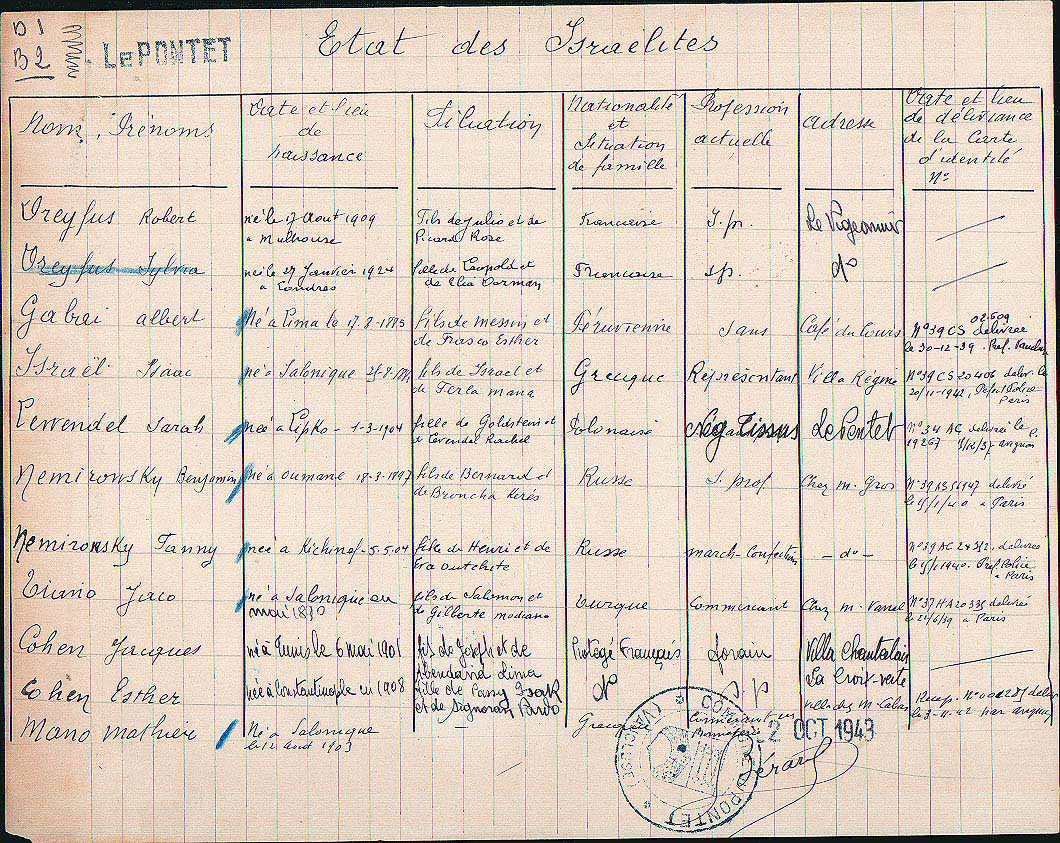 D1
B2
Le PONTET
Etat des Israélites
Nom, Prénoms
Date et lieu
de
naissance
Filiation
Nationalité
et
Situation
de famille
Profession
actuelle
adresse
Date et lieu
de délivrance
de la Carte
d'identité
N°
Dreyfus Robert
né le 17 Aout 1909
a Mulhouse
Fils de Julio et de
Picard Rose
Francaise
S.p.
Le Vigeannir
Dreyfus Sylvia
née le 27 Janvier 1924
a Londres
fille de Léopold et
de Elia Dorman
Francaise
s.p.
d°
Gabrai albert
Né a Lima le 17-8-1895
fils de messin et
de Frasco Esther
Péruvienne
Sans
Café du Cours
N° 39 CS 02609 délivrée
le 30-12-39. Pref. Vaucluse
Israël Isaac
né a Salonique
fils de Israel et
de Ferla mana
Grecque
Représentant
Villa Régine
N° 39 CS 20406 deliv. le
20/11-1942, Pref Police
Paris
Lewendel Sarah
née a Lipko - 1-3-1904
fille de Goldstein et
de Levendel Rachel
Polonaise
Nég Tissus
Le Pontet
N° 34 AC delivrée le
19267 avignon
Nemirowsky Benjamin
né a oumane 18-3-1897
fils de Bernard et
de Broncha Keres
Russe
S. prof
Chez m. Gros
N° 39 AS 56947 delivré
le 15/1/40 a Paris
Nemirowsky Fanny
née a Kichinef - 5.5.04
fille de Henri et de
Eva outchete
Russe
march. Confection
- d° -
N° 39 AC 24512. delivree
le 15/1 1940. Pref. Police
a Paris
Tiano Jaco
né a Salonique en
mai 1890
fils de Salomon et
de Gilberte modiano
Turque
Commercant
Chez m. Vanel
N° 37 HA 20335 delivré
le 22/6/39 a Paris
Cohen Jacques
né à Tunis le 6 mai 1901
fils de Joseph et de
Abendana Lima
Protégé Français
forain
Villa Chantalais
La Croix-verte
Cohen Esther
née à Constantinople en 1908
fille de Passy Isaak
et de Signoran Pardo
d°
S.p
Villa des M. Cabas
Recep. N° 00285 deliv
le 3-11-42 par avignon
Mano mathieu
Né a Salonique
le 12 Aout 1903
Grecque
Commercant en
bonneterie
COMMUNE DU PONTET (VAUCLUSE)
2 OCT 1943
Gérard